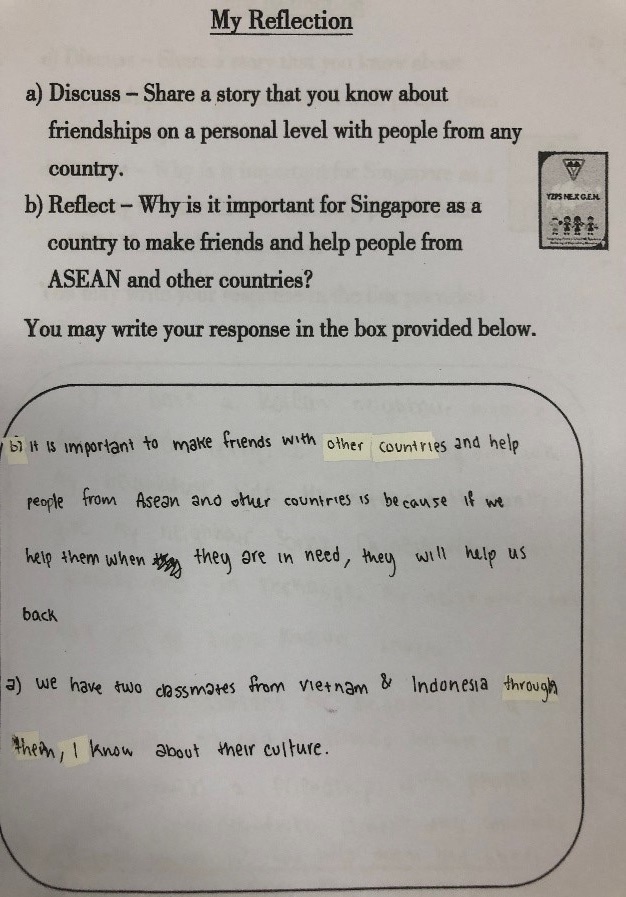 My Reflection
a) Discuss – Share a story that you know about
friendships on a personal level with people from any
country.
b) Reflect – Why is it important for Singapore as a
country to make friends and help people from
ASEAN and other countries?
You may write your response in the box provided below.
b) It is important to make friends with other countries and help
people from Asean and other countries is because if we
help them when they are in need, they will help us
back
a) we have two classmates from vietnam & Indonesia through
them, I know about their culture.